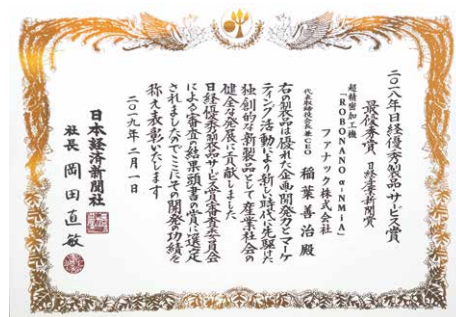 二〇一八年日経優秀製品・サービス賞
最優秀賞 日経産業新聞賞
超精密加工機
「ROBONANO α-NMiA」
ファナック株式会社
代表取締役会長兼CEO 稲葉善治殿
右の製品は優れた企画開発力とマーケ
ティング活動により新しい時代に先駆けた
独創的な新製品として産業社会の
健全な発展に貢献しました
日経優秀製品・サービス賞審査委員会
による審査の結果頭書の賞に選定
されましたのでここにその開発の功績を
称え表彰いたします
二〇一九年二月一日
日本経済新聞社
社長 岡田直敏